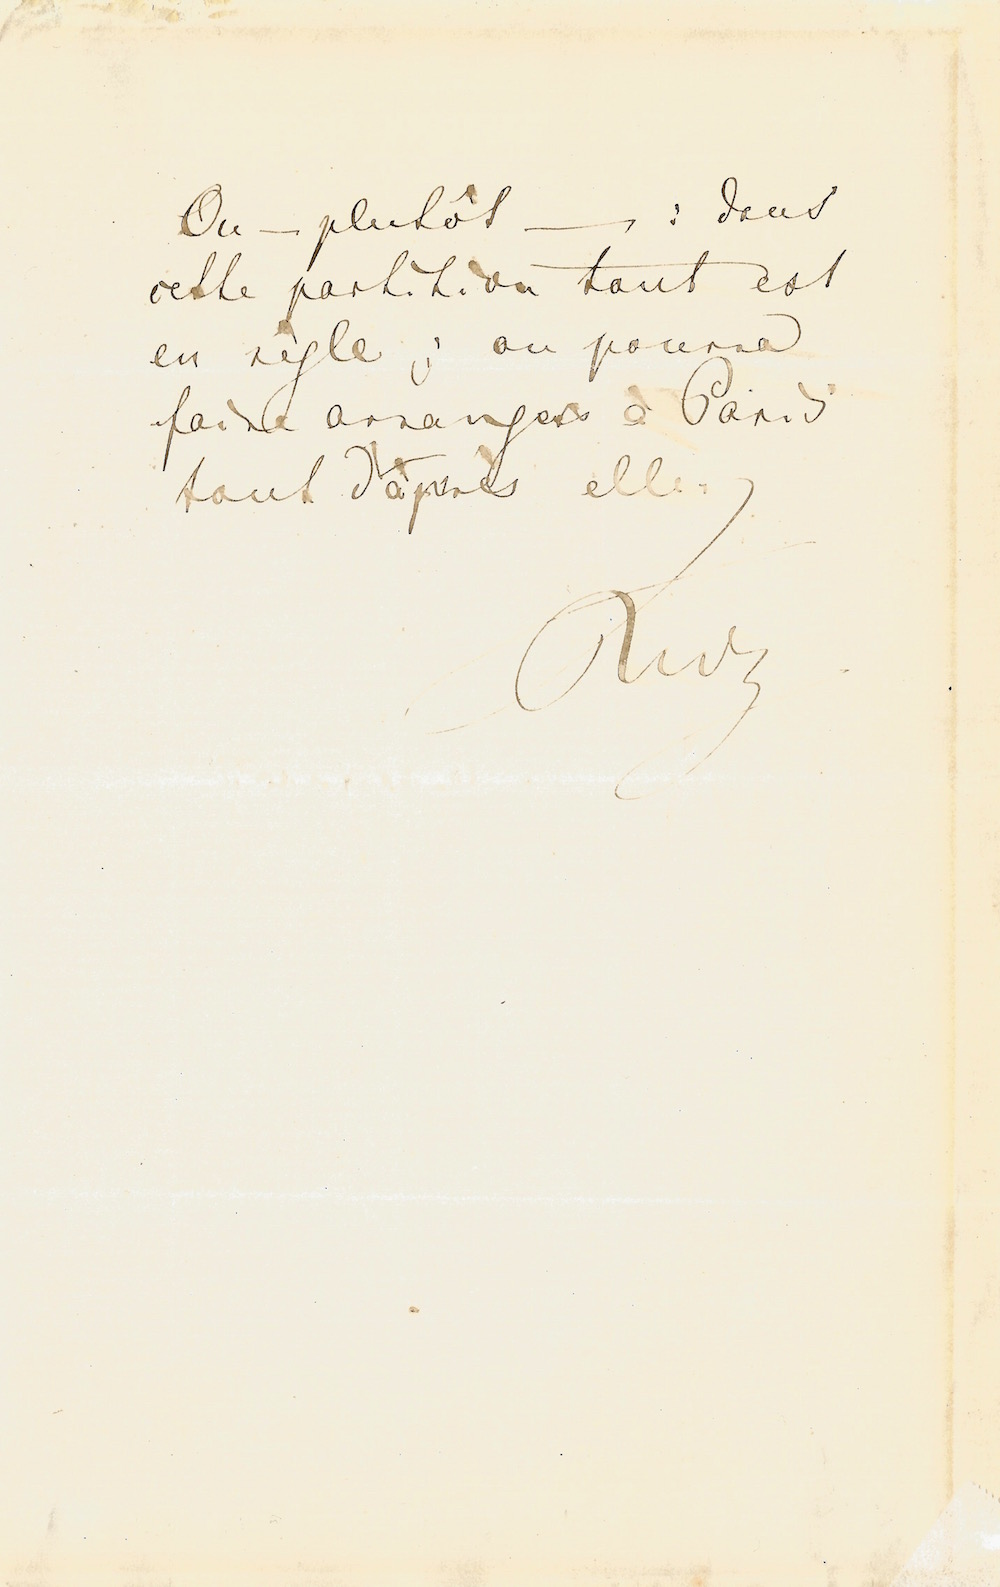 Ou — plutôt — : dans
cette partition tout est
en règle ; on pourra
faire arranger à Paris
tout d'après elle.